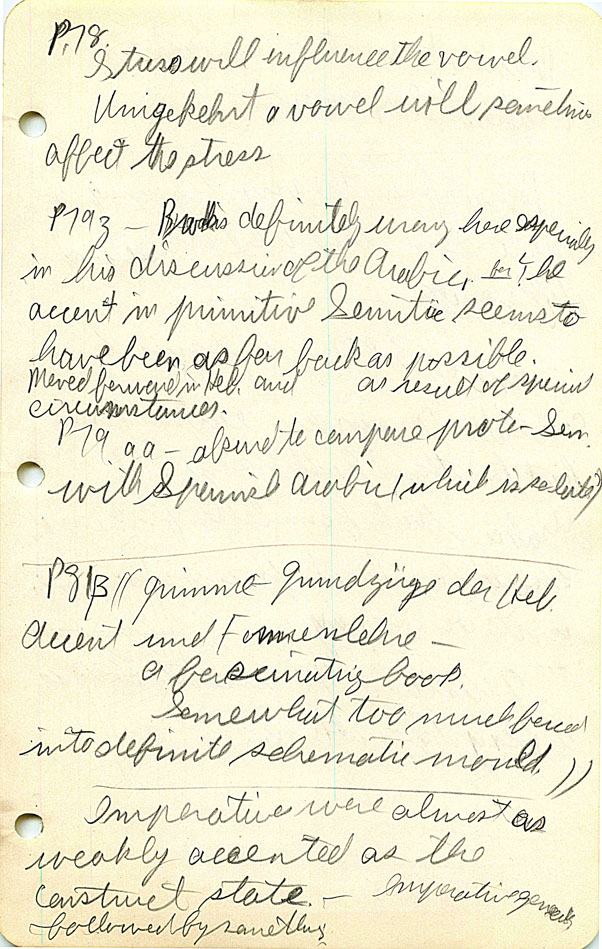 P.78.
Stress will influence the vowel.
Umgekehrt a vowel will sometimes
affect the stress
P79 3 – definitely wrong here especially
in his discussion of the Arabic, for the
accent in primitive Semitic seems to
have been as far back as possible.
Moved forward in Heb. and as result of special
circumstances.
P79 aa – absurd to compare proto-Sem.
with Spanish Arabic (which is so late)
P81β (( Grimme Grundzüge der Heb.
accent und Formenlehre –
a fascinating book.
Somewhat too much forced
into definite schematic mould. ))
Imperatives were almost as
weakly accented as the
construct state. – Imperative generally
followed by something